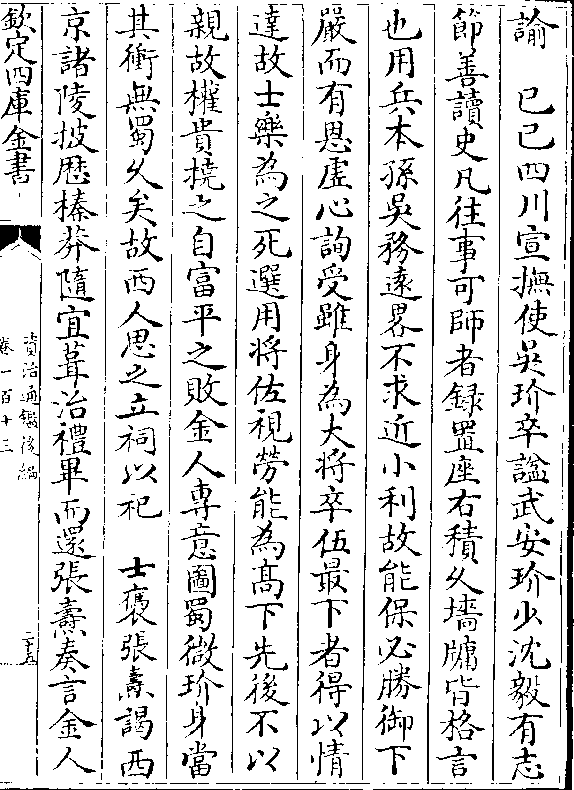 諭　己巳四川宣撫使吳玠卒諡武安玠少沈毅有志
節善讀史凡往事可師者録置座右積久墻牖皆格言
也用兵本孫吳務遠畧不求近小利故能保必勝御下
嚴而有恩虚心詢受雖身為大將卒伍最下者得以情
達故士樂為之死選用將佐視勞能為髙下先後不以
親故權貴撓之自富平之敗金人專意圖蜀微玠身當
其衝無蜀久矣故西人思之立祠以祀　士㒟張燾謁西
京諸陵披歴榛莽隨宜葺治禮畢而還張燾奏言金人
欽定四庫全書
資治通鑑後編
卷一百十三
二十五